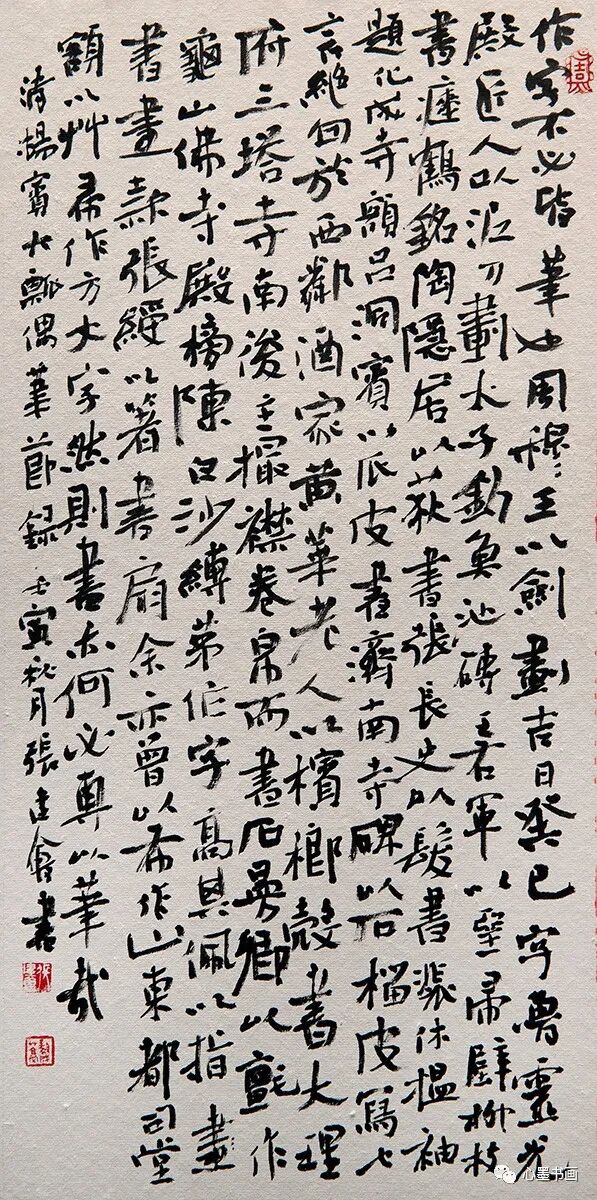 作字不必皆筆也周穆王以劍劃吉日癸巳字魯靈光
殿匠人以泥刀劃太子釣魚池磚王右軍以堊帚壁柳枝
書瘞鶴銘陶隱居以荻書張長史以髮書裴休搵袖
題化成寺額呂洞賓以瓜皮書濟南寺碑以石榴皮寫七
言絕句於西鄰酒家黃華老人以檳榔殼書大理
府三塔寺南後主撮襟卷帛而書石曼卿以氈作
龜山佛寺殿榜陳白沙縛茅作字高其佩以指畫
書畫款張綬以箸書扇余亦曾以布作山東都司堂
額以艸帚作方大字然則書亦何必專以筆哉
清楊賓大瓢偶筆節錄壬寅秋月張建會書
心墨书画